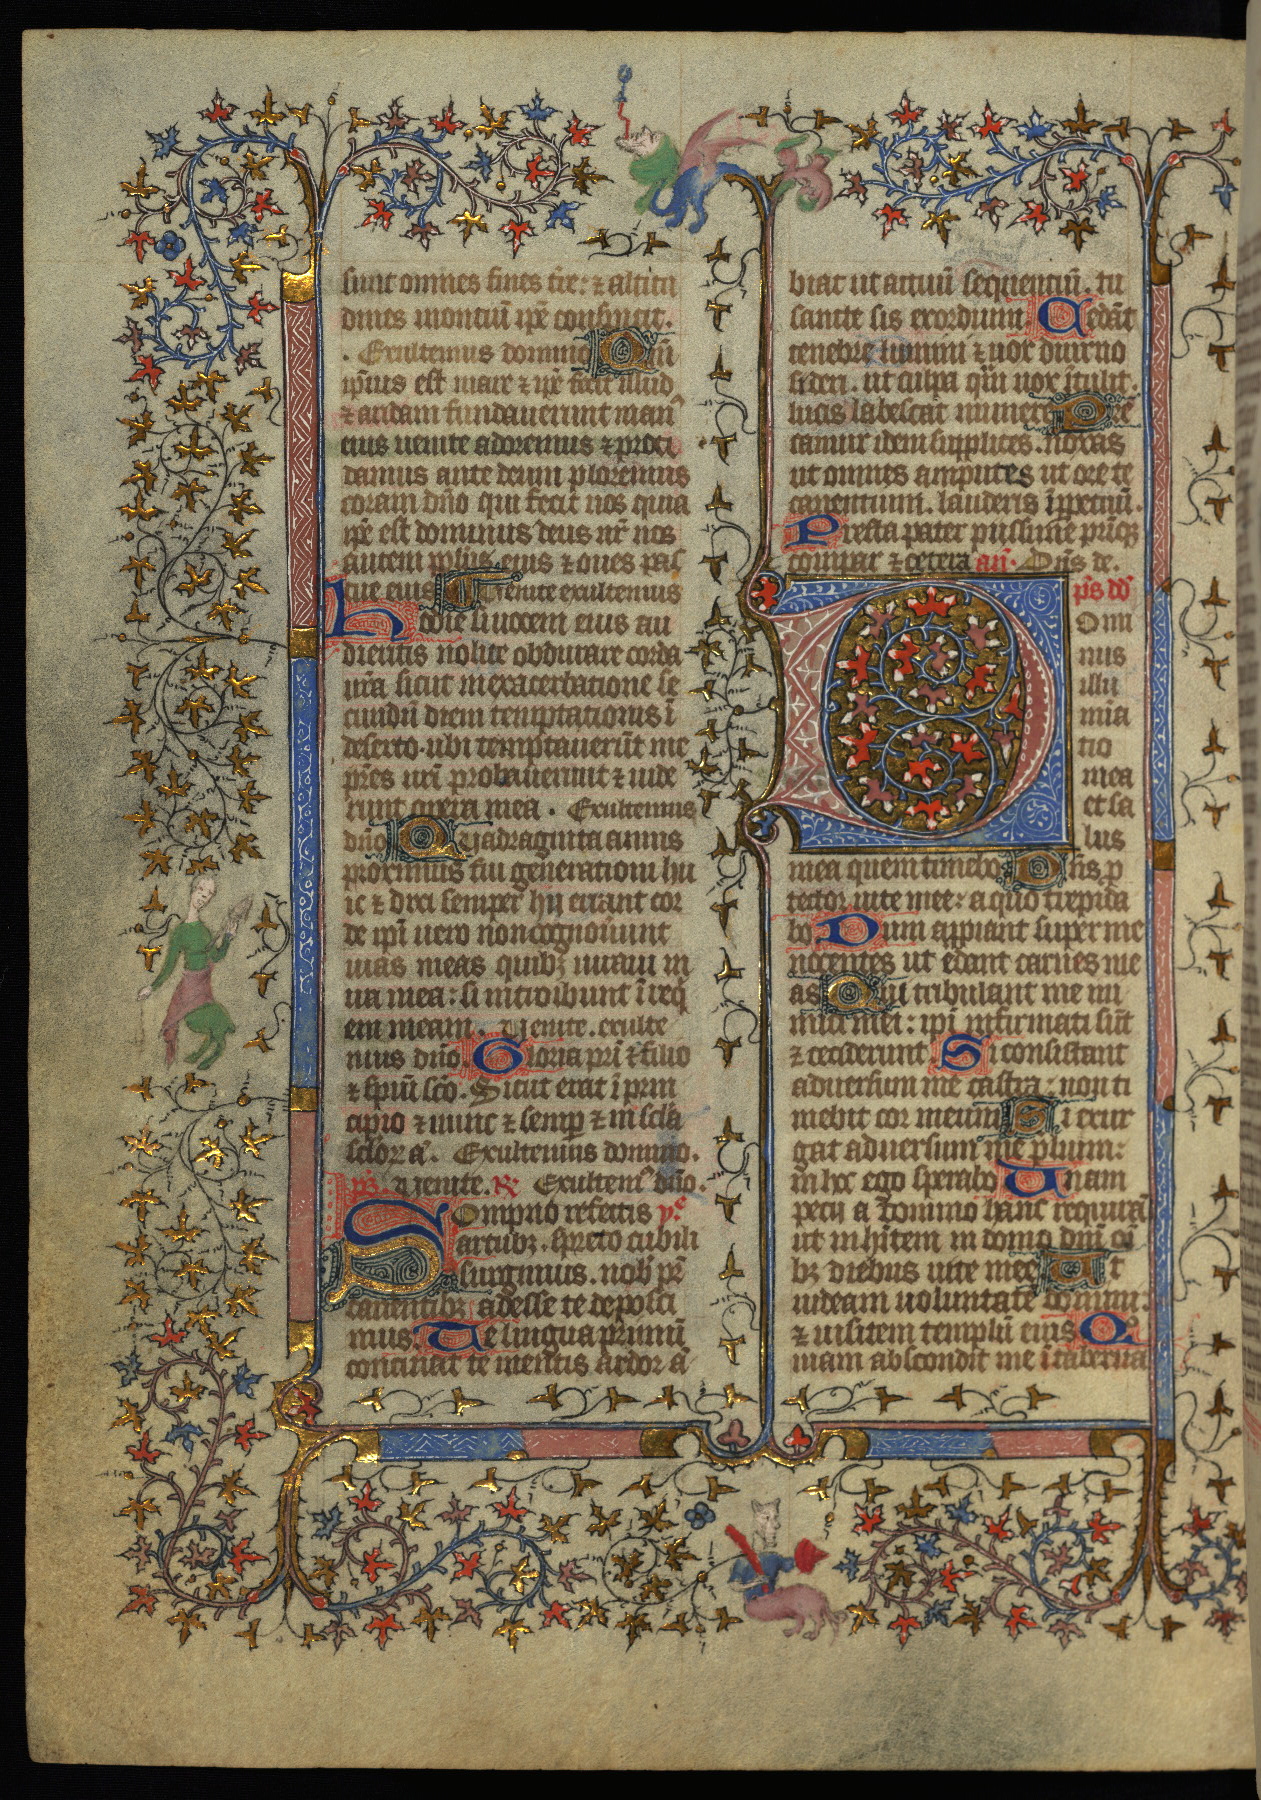 sunt omnes fines tr̄e: ⁊ altitu
dines montiū ip̄e conspicit.
. Exultemus domino Qm̄
ipsius est mare ⁊ ip̄e fecit illud
⁊ aridam fundauerunt man⁹
eius uenite adoremus ⁊ proci
damus ante deum ploremus
coram dn̄o qui fecit nos quia
ip̄e est dominus deus nr̄ nos
autem pplūs eius ⁊ oues pas
cue eius Uenite exultemus
Hodie si uocem eius au
dieritis nolite obdurare corda
ur̄a sicut in exacerbatione se
cundū diem temptationis ī
deserto. ubi temptauerūt me
pr̄es ur̄i probauerunt ⁊ uide
runt opera mea . Exultemus
dn̄o Quadraginta annis
proximus fui generationi hu
ic ⁊ dixi semper hij errant cor
de ip̄i uero non cognouūnt
uias meas quibꝫ iuraui in
ira mea: si introibunt ī req̄
em meam. Uenite. exulte
mus dn̄o Gloria pr̄i ⁊ filio
⁊ spūi scō. Sicut erat ī prin
cipio ⁊ nunc ⁊ semꝑ ⁊ in scl̄a
scl̄oꝝ a. Exultemus domino.
ps. Uenite. R Exultem⁹ dn̄o.
Sompno refectis ym̄
artubꝫ. spreto cubili
surgimus. nob̄ pr̄
canentibꝫ adesse te deposci
mus: Te lingua primū
concinat te mentis ardor ā
biat ut actuū sequentiū. tu
sancte sis exordium Cedāt
tenebre lumini ⁊ nox diurno
sideri. ut culpa quā nox ītulit.
lucis labescat munere Pre
camur idem supplices. noxas
ut omnes amputes ut ore te
canentium. lauderis ī ꝑpetuū.
Presta pater piissime pr̄iqꝫ
compar ⁊ cetera an̄. Dn̄s de.
ps dd̄
Domi
nus
illu
mīa
tio
mea
et sa
lus
mea quem timebo Dn̄s ꝓ
tector uite mee: a quo trepida
bo Dum appiant super me
nocentes ut edant carnes me
as Qui tribulant me ini
mici mei: ip̄i infirmati sūt
⁊ ceciderunt Si consistant
aduersum me castra: non ti
mebit cor meum Si exur
gat aduersum me plium:
in hoc ego sperabo Unam
pecij a domino hanc requirā
ut inhītem in domo dn̄i oī
bꝫ diebus uite mee Ut
uideam uoluntatē domini:
⁊ uisitem templū eius Qo
niam abscondit me ī taberna